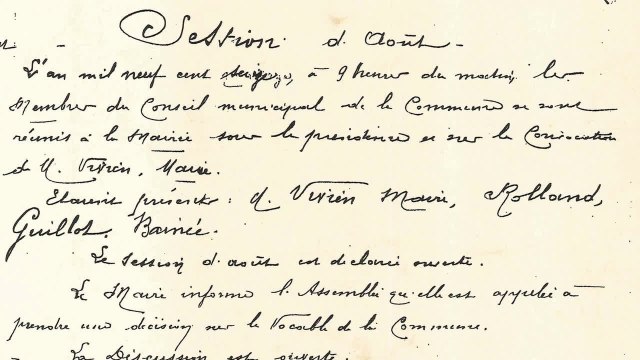 Session d'Août -
L'an mil neuf cent seize, à 9 heures du matin, les
Membres du Conseil municipal de la Commune se sont
réunis à la Mairie sous la présidence et sur la Convocation
de M. Vivien, Maire.
Etaient présents : M. Vivien Maire, Rolland,
Guillot,
La session d'août est déclarée ouverte.
Le Maire informe l'Assemblée qu'elle est appelée à
prendre une décision sur le Vocable de la Commune.
La Discussion est ouverte.